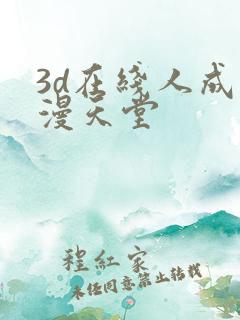 3d在綫人成
漫天堂
程紅家
未经同意禁止转载